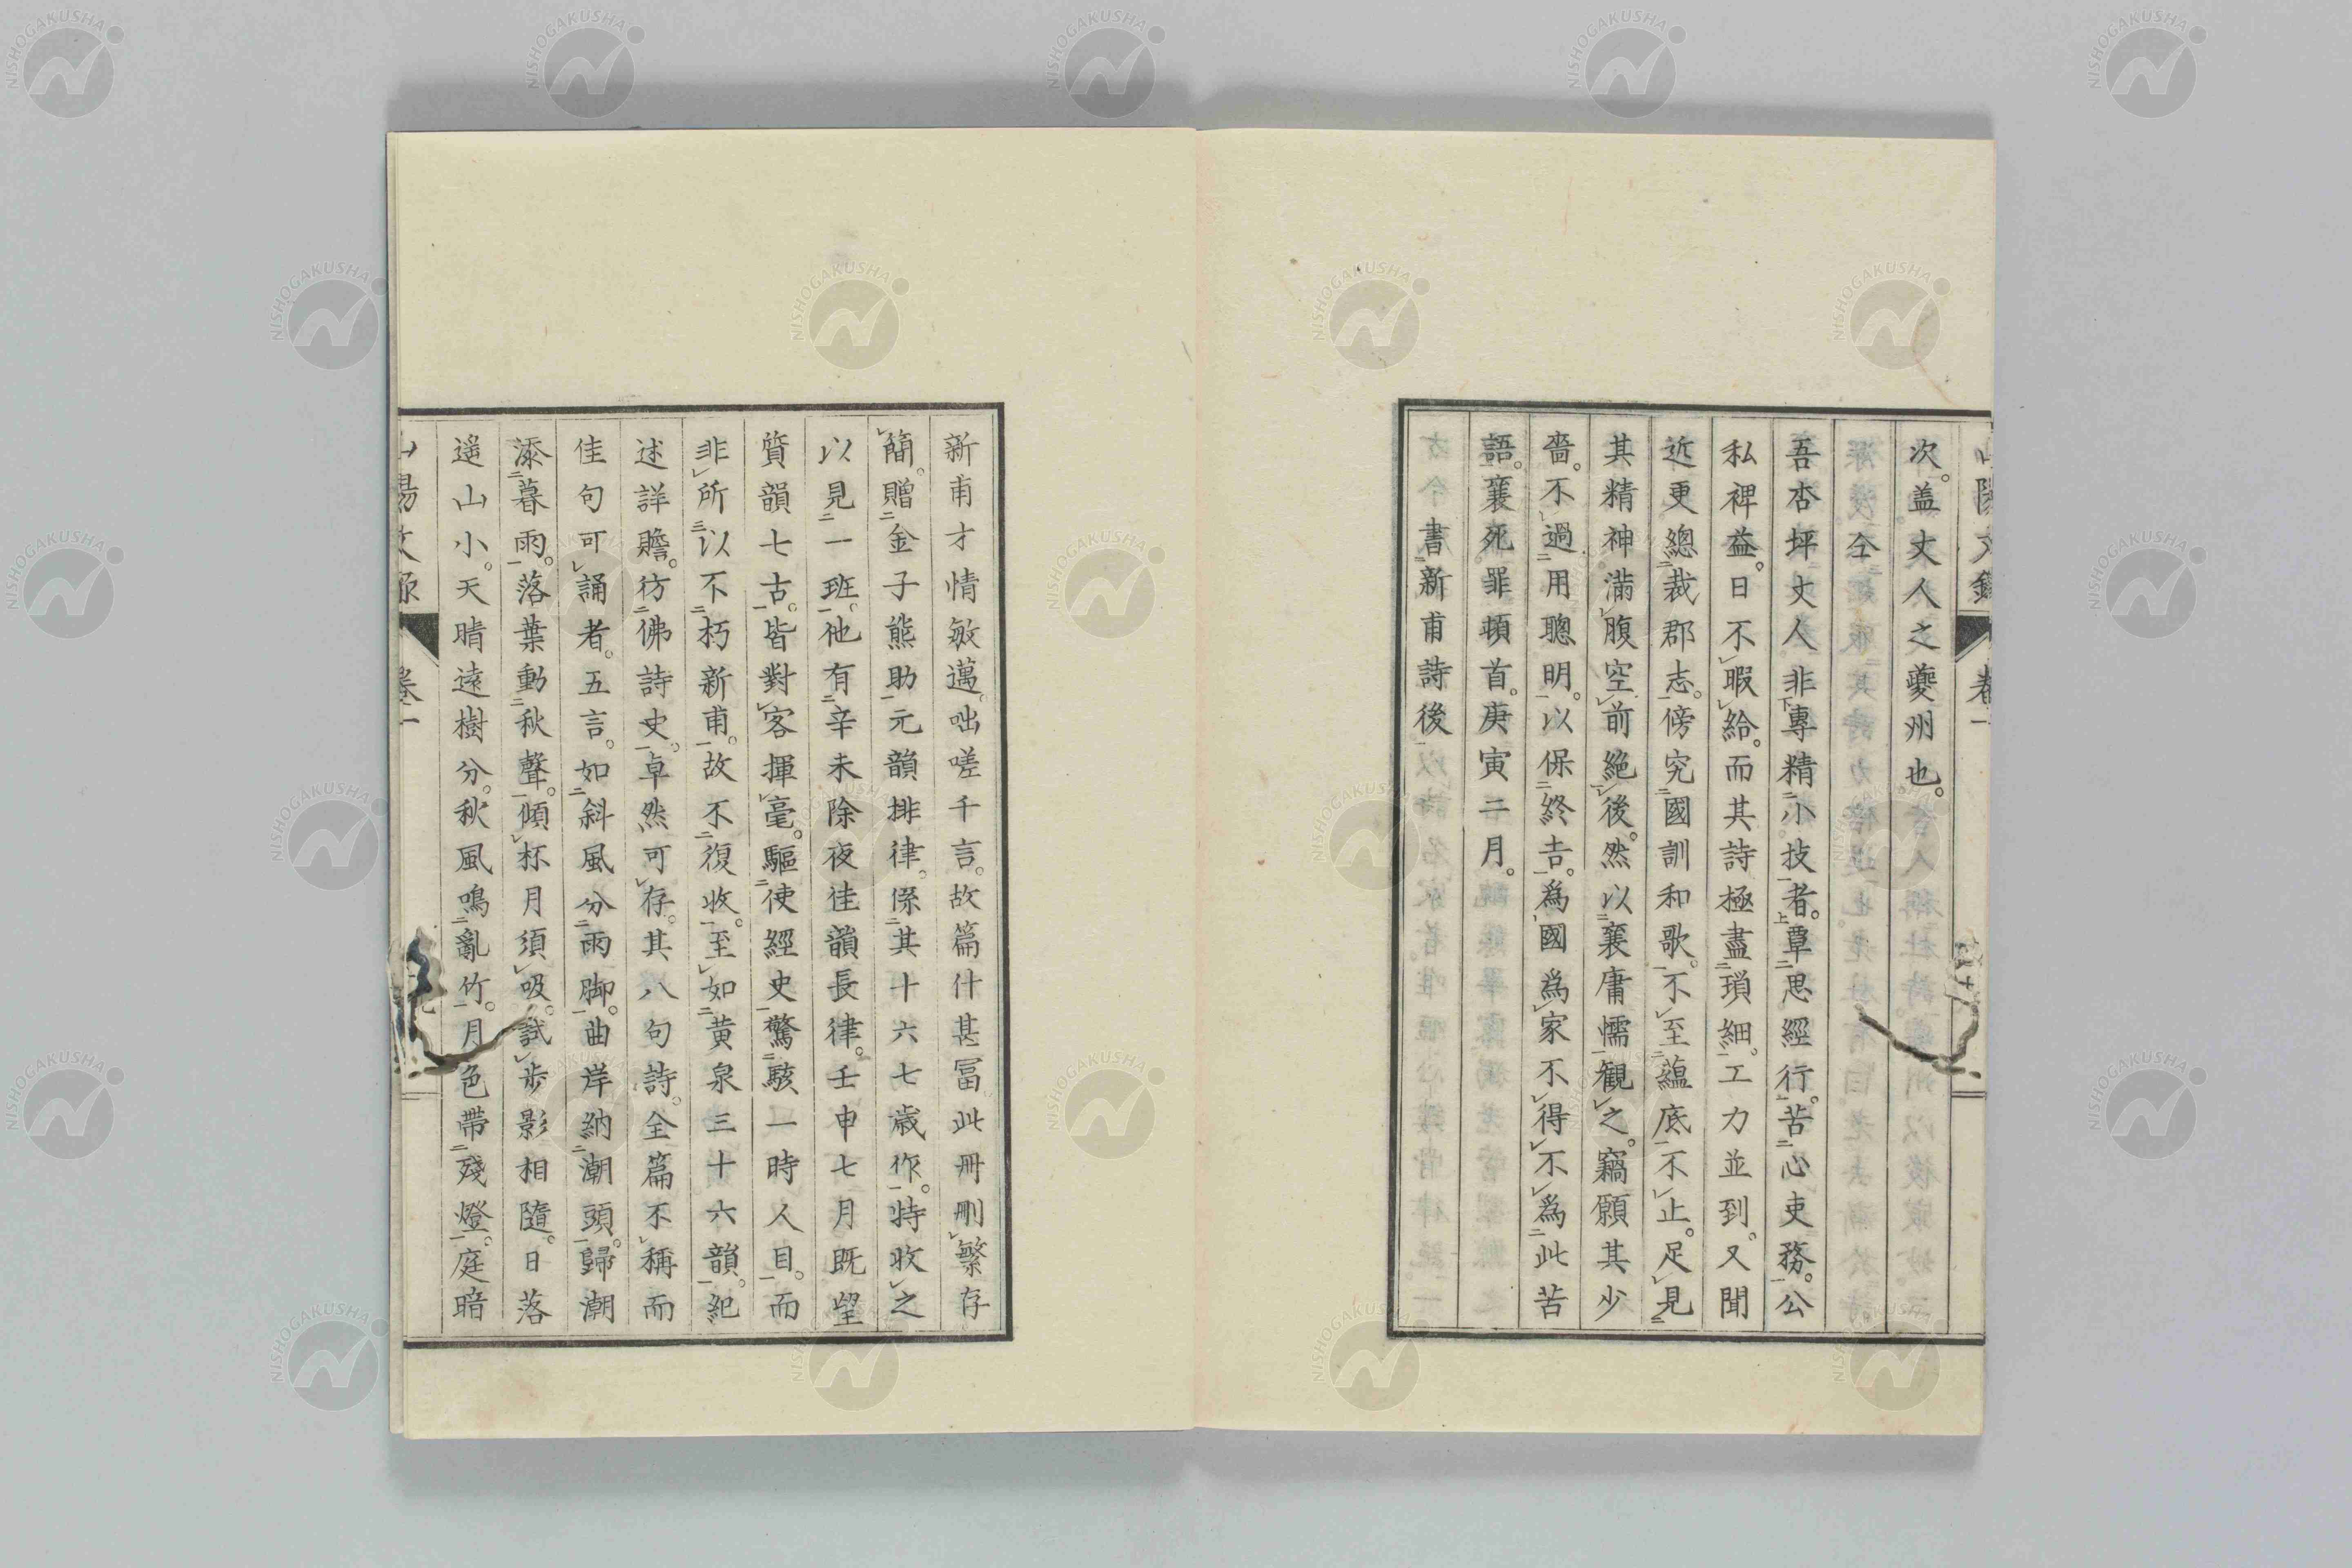 次。盖丈人之夔州也。
仝
吾杏坪丈人非專精小技者。覃思經行。苦心吏務。公
私裨益。日不暇給。而其詩極盡瑣細。工力並到。又聞
近更總裁郡志。傍究國訓和歌。不至蘊底不止。足見
其精神滿腹空前絕後。然以襄庸懦觀之。竊願其少
嗇。不過用聰明。以保終吉。為國為家不得不為此苦
語。襄死罪頓首。庚寅二月。
書新甫詩後
新甫才情敏邁。咄嗟千言。故篇什甚冨此冊刪繁存
簡。贈金子熊助元韻排律。係其十六七歳作。特收之
以見一班。他有辛未除夜佳韻長律。壬申七月既望
質韻七古。皆對客揮毫。驅使經史驚駭一時人目。而
非所以不朽新甫。故不復收。至如黄泉三十六韻。紀
述詳贍。彷佛詩史。卓然可存。其八句詩。全篇不稱而
佳句可誦者。五言。如斜風分雨脚。曲岸納潮頭。歸潮
添暮雨。落葉動秋聲。傾杯月須吸。試歩影相隨。日落
遥山小。天晴遠樹分。秋風鳴亂竹。月色帶殘燈。庭暗
卷一
NISHOGAKUSHA